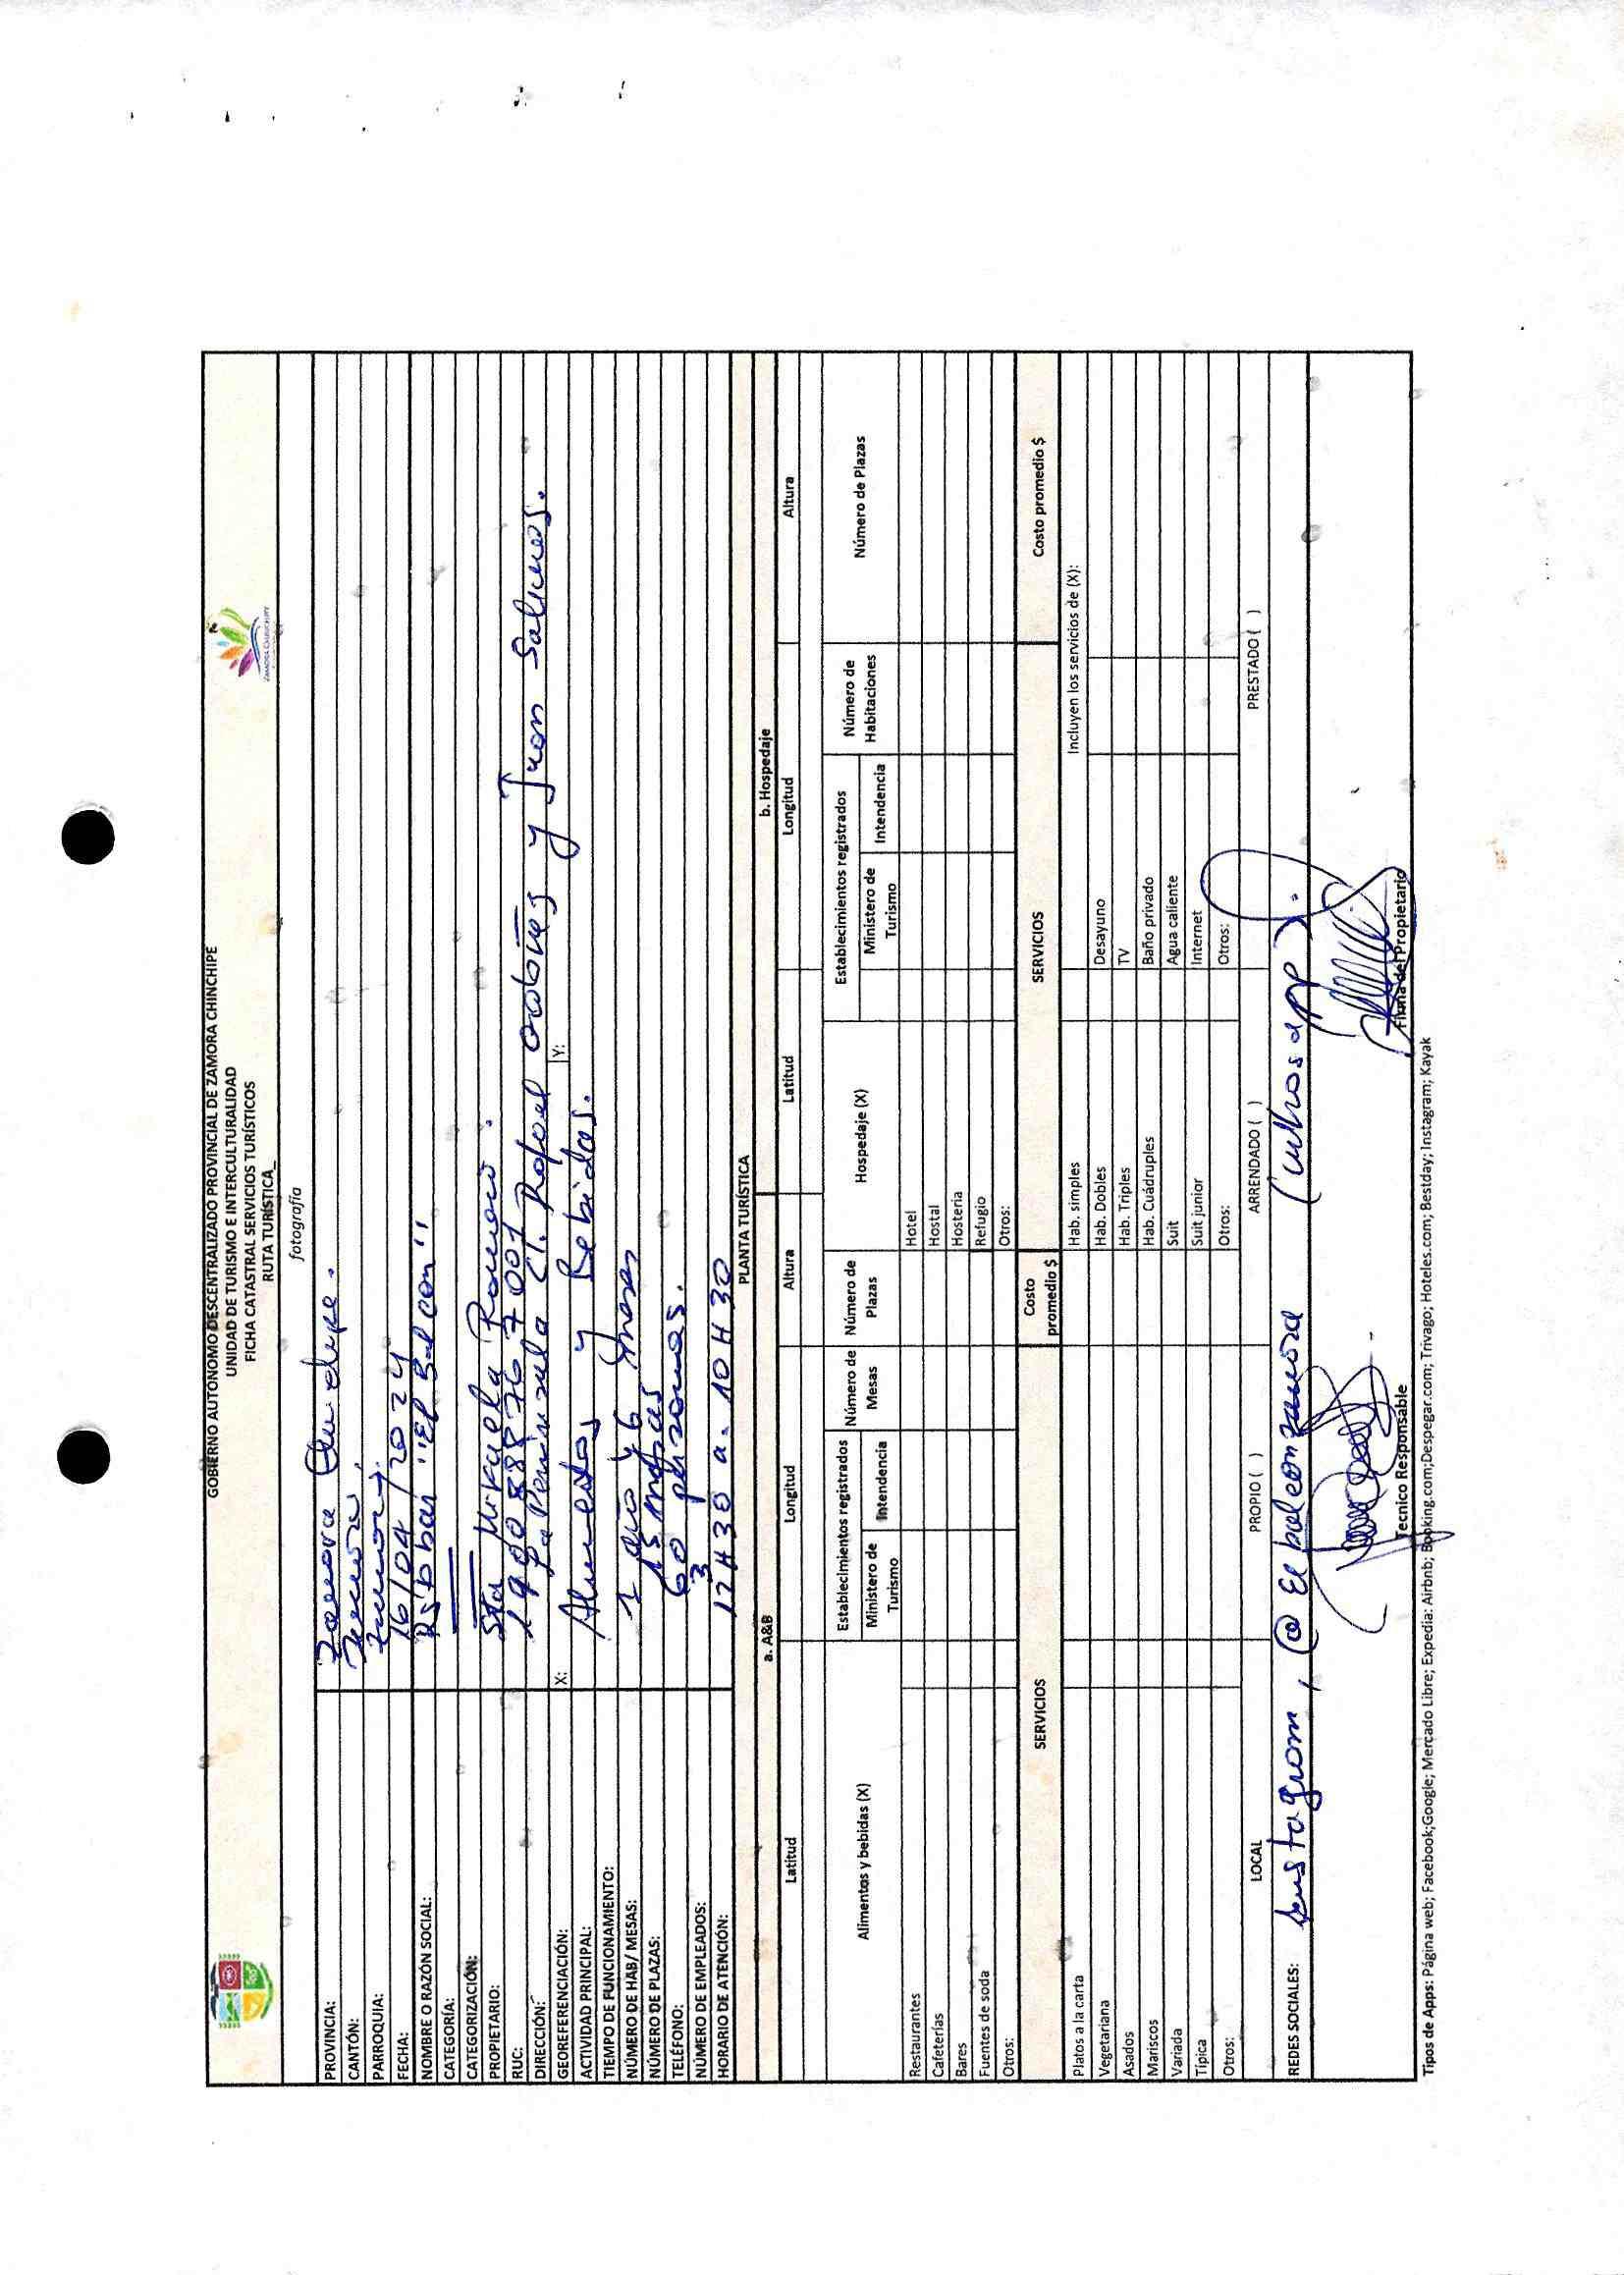 GOBIERNO AUTÓNOMO DESCENTRALIZADO PROVINCIAL DE ZAMORA CHINCHIPE
UNIDAD DE TURISMO E INTERCULTURALIDAD
FICHA CATASTRAL SERVICIOS TURÍSTICOS
RUTA TURÍSTICA_
ZAMORA CHINCHIPE
fotografía
PROVINCIA: Zamora Chinchipe.
CANTÓN: Zamora.
PARROQUIA: Zamora.
FECHA: 16/04/2024
NOMBRE O RAZÓN SOCIAL: bar "El Balcon"
CATEGORÍA:
CATEGORIZACIÓN:
PROPIETARIO: Sta Mikaela Romero.
RUC: 1900888767001
DIRECCIÓN: La Peninsula Cl. Rafael y Juan Salinas.
GEOREFERENCIACIÓN: X: Y:
ACTIVIDAD PRINCIPAL: Alimentos y Bebidas.
TIEMPO DE FUNCIONAMIENTO:
NÚMERO DE HAB/ MESAS: 1 año y 6 meses
NÚMERO DE PLAZAS: 15 mesas
TELÉFONO: 60 personas.
NÚMERO DE EMPLEADOS: 3
HORARIO DE ATENCIÓN: 12H30 a. 10H30
PLANTA TURÍSTICA
a. A&B b. Hospedaje
Latitud Longitud Altura Latitud Longitud Altura
Alimentos y bebidas (X) Establecimientos registrados Número de Mesas Número de Plazas Hospedaje (X) Establecimientos registrados Número de Habitaciones Número de Plazas
Ministero de Turismo Intendencia Ministero de Turismo Intendencia
Restaurantes Hotel
Cafeterías Hostal
Bares Hosteria
Fuentes de soda Refugio
Otros: Otros:
SERVICIOS Costo promedio $ SERVICIOS Costo promedio $
Platos a la carta Hab. simples Incluyen los servicios de (X):
Vegetariana Hab. Dobles Desayuno
Asados Hab. Triples TV
Mariscos Hab. Cuádruples Baño privado
Variada Suit Agua caliente
Típica Suit junior Internet
Otros: Otros: Otros:
LOCAL PROPIO ( ) ARRENDADO ( ) PRESTADO ( )
REDES SOCIALES: Instagram, @ El balconzamora
Tecnico Responsable Firma del Propietario
Tipos de Apps: Página web; Facebook;Google; Mercado Libre; Expedia: Airbnb; Booking.com;Despegar.com; Trivago; Hoteles.com; Bestday; Instagram; Kayak